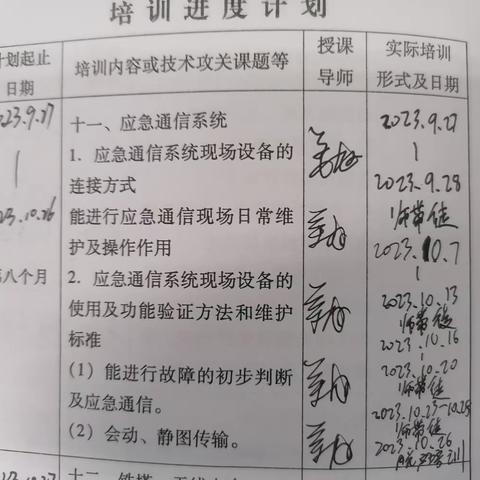 培训进度计划
计划起止
日期
培训内容或技术攻关课题等
授课
导师
实际培训
形式及日期
2023.9.27
|
23.10.26
第八个月
十一、应急通信系统
1. 应急通信系统现场设备的
连接方式
能进行应急通信现场日常维
护及操作作用
2. 应急通信系统现场设备的
使用及功能验证方法和维护
标准
(1) 能进行故障的初步判断
及应急通信。
(2) 会动、静图传输。
2023.9.27
|
2023.9.28
师带徒
2023.10.7
|
2023.10.13
师带徒
2023.10.16
|
2023.10.20
师带徒
2023.10.23-10.25
师带徒
2023.10.26
脱产培训